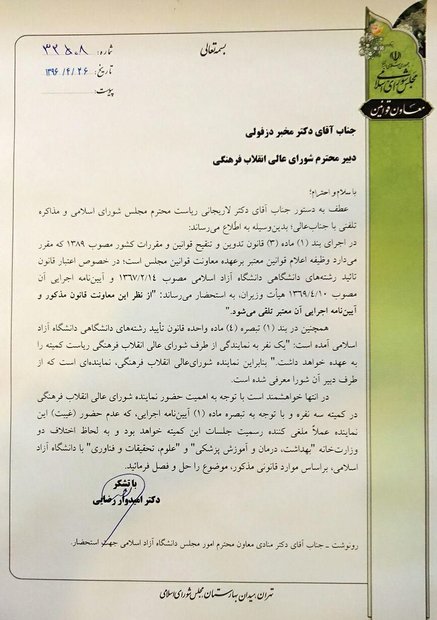 بسمه‌تعالی
شماره: ۳۲۵۰۸
تاریخ: ۱۳۹۶/۴/۲۶
پیوست:
جمهوری اسلامی ایران
مجلس شورای اسلامی
معاون قوانین
جناب آقای دکتر مخبر دزفولی
دبیر محترم شورای عالی انقلاب فرهنگی
با سلام و احترام؛
عطف به دستور جناب آقای دکتر لاریجانی ریاست محترم مجلس شورای اسلامی و مذاکره
تلفنی با جناب‌عالی؛ بدین‌وسیله به اطلاع می‌رساند:
در اجرای بند (۱) ماده (۳) قانون تدوین و تنقیح قوانین و مقررات کشور مصوب ۱۳۸۹ که مقرر
می‌دارد وظیفه اعلام قوانین معتبر برعهده معاونت قوانین مجلس است؛ در خصوص اعتبار قانون
تائید رشته‌های دانشگاهی دانشگاه آزاد اسلامی مصوب ۱۳۶۷/۲/۱۴ و آیین‌نامه اجرایی آن
مصوب ۱۳۶۹/۴/۱۰ هیأت وزیران، به استحضار می‌رساند: "از نظر این معاونت قانون مذکور و
آیین‌نامه اجرایی آن معتبر تلقی می‌شود."
همچنین در بند (۱) تبصره (۴) ماده واحده قانون تأیید رشته‌های دانشگاهی دانشگاه آزاد
اسلامی آمده است: "یک نفر به نمایندگی از طرف شورای عالی انقلاب فرهنگی ریاست کمیته را
به عهده خواهد داشت." بنابراین نماینده شورای‌عالی انقلاب فرهنگی، نماینده‌ای است که از
طرف دبیر آن شورا معرفی شده است.
در انتها خواهشمند است با توجه به اهمیت حضور نماینده شورای عالی انقلاب فرهنگی
در کمیته سه نفره و با توجه به تبصره ماده (۱) آیین‌نامه اجرایی، که عدم حضور (غیبت) این
نماینده عملاً ملغی کننده رسمیت جلسات این کمیته خواهد بود و به لحاظ اختلاف دو
وزارت‌خانه "بهداشت، درمان و آموزش پزشکی" و "علوم، تحقیقات و فناوری" با دانشگاه آزاد
اسلامی، براساس موارد قانونی مذکور، موضوع را حل و فصل فرمائید.
با تشکر
دکتر امیدوار رضایی
رونوشت ـ جناب آقای دکتر منادی معاون محترم امور مجلس دانشگاه آزاد اسلامی جهت استحضار.
تهران، میدان بهارستان، مجلس شورای اسلامی